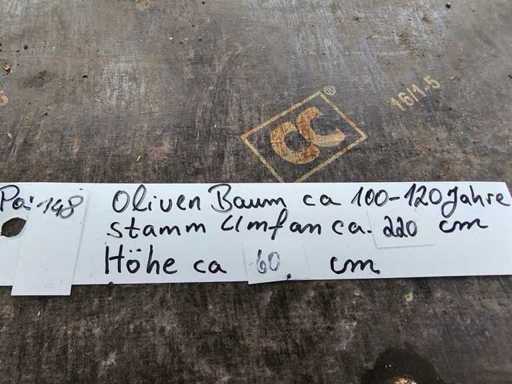 CC®
16/1-5
Po: 148
Oliven Baum ca 100-120 Jahre
stamm Umfan ca. 220 cm
Höhe ca 60 cm